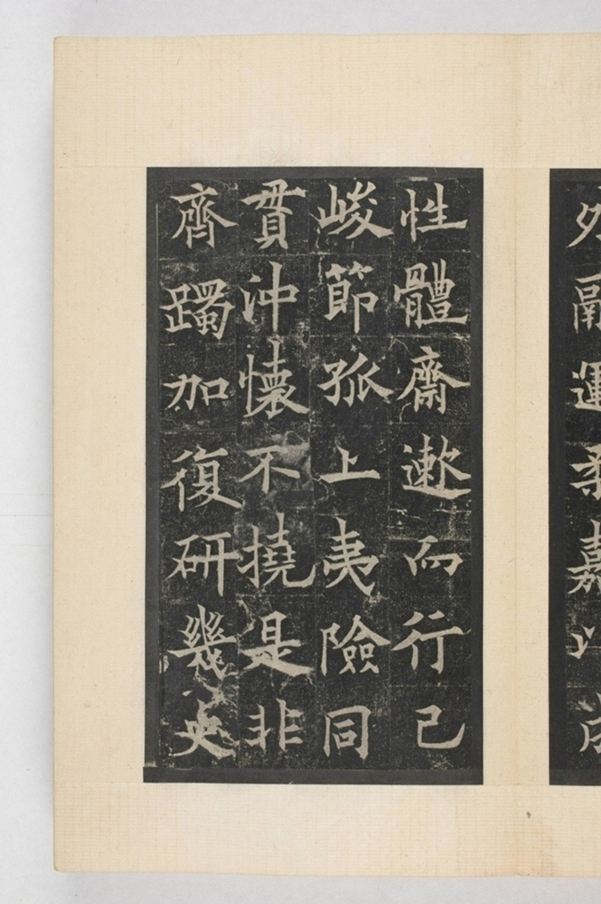 性體齋遬而行己
峻節孤上夷險同
貫沖懷不撓是非
齊躅加復研幾史